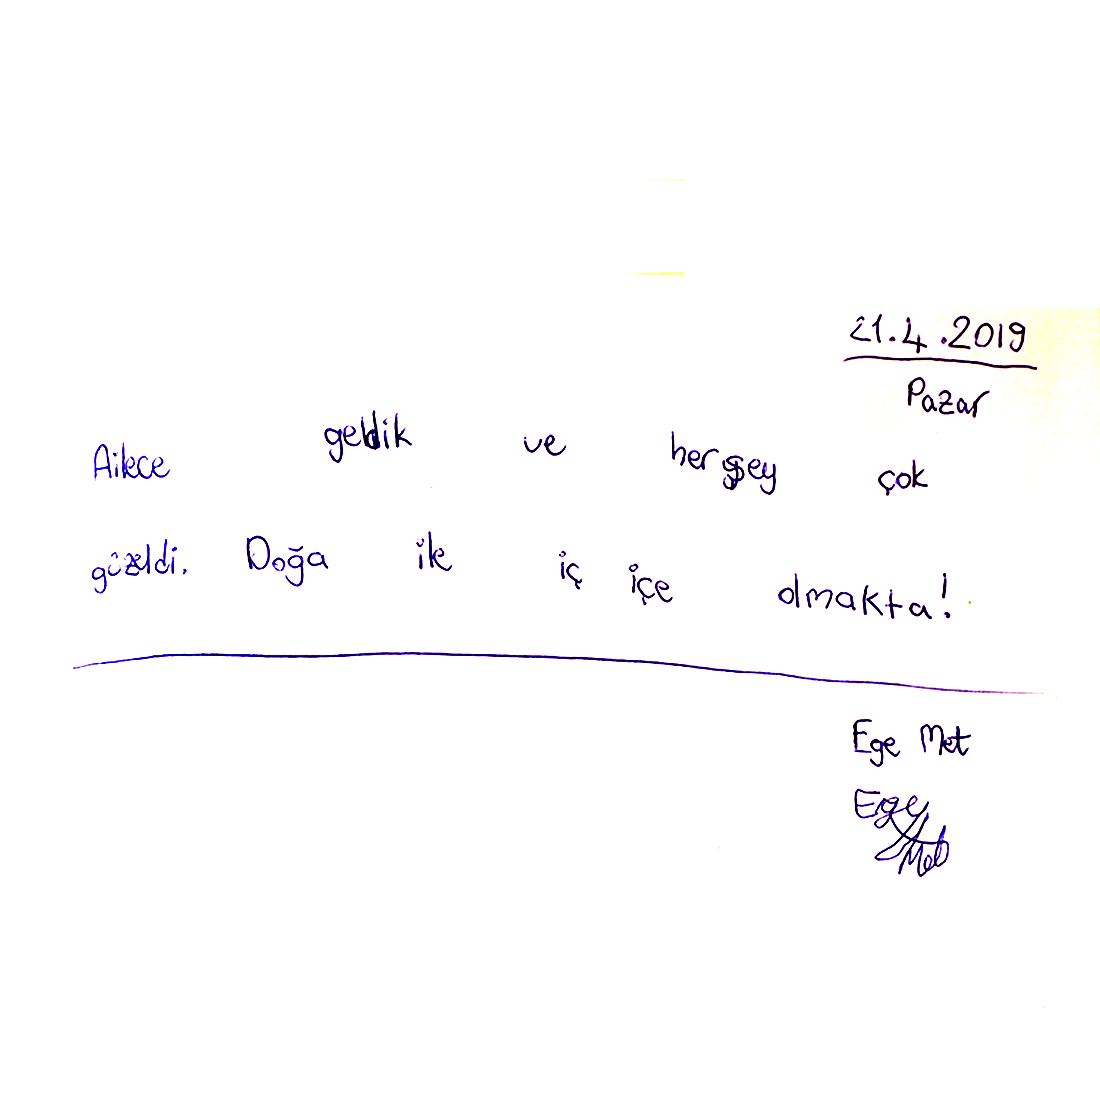 21.4.2019
Pazar
Ailece geldik ve herşey çok
güzeldi. Doğa ile iç içe olmakta!
Ege Met
Ege
Met